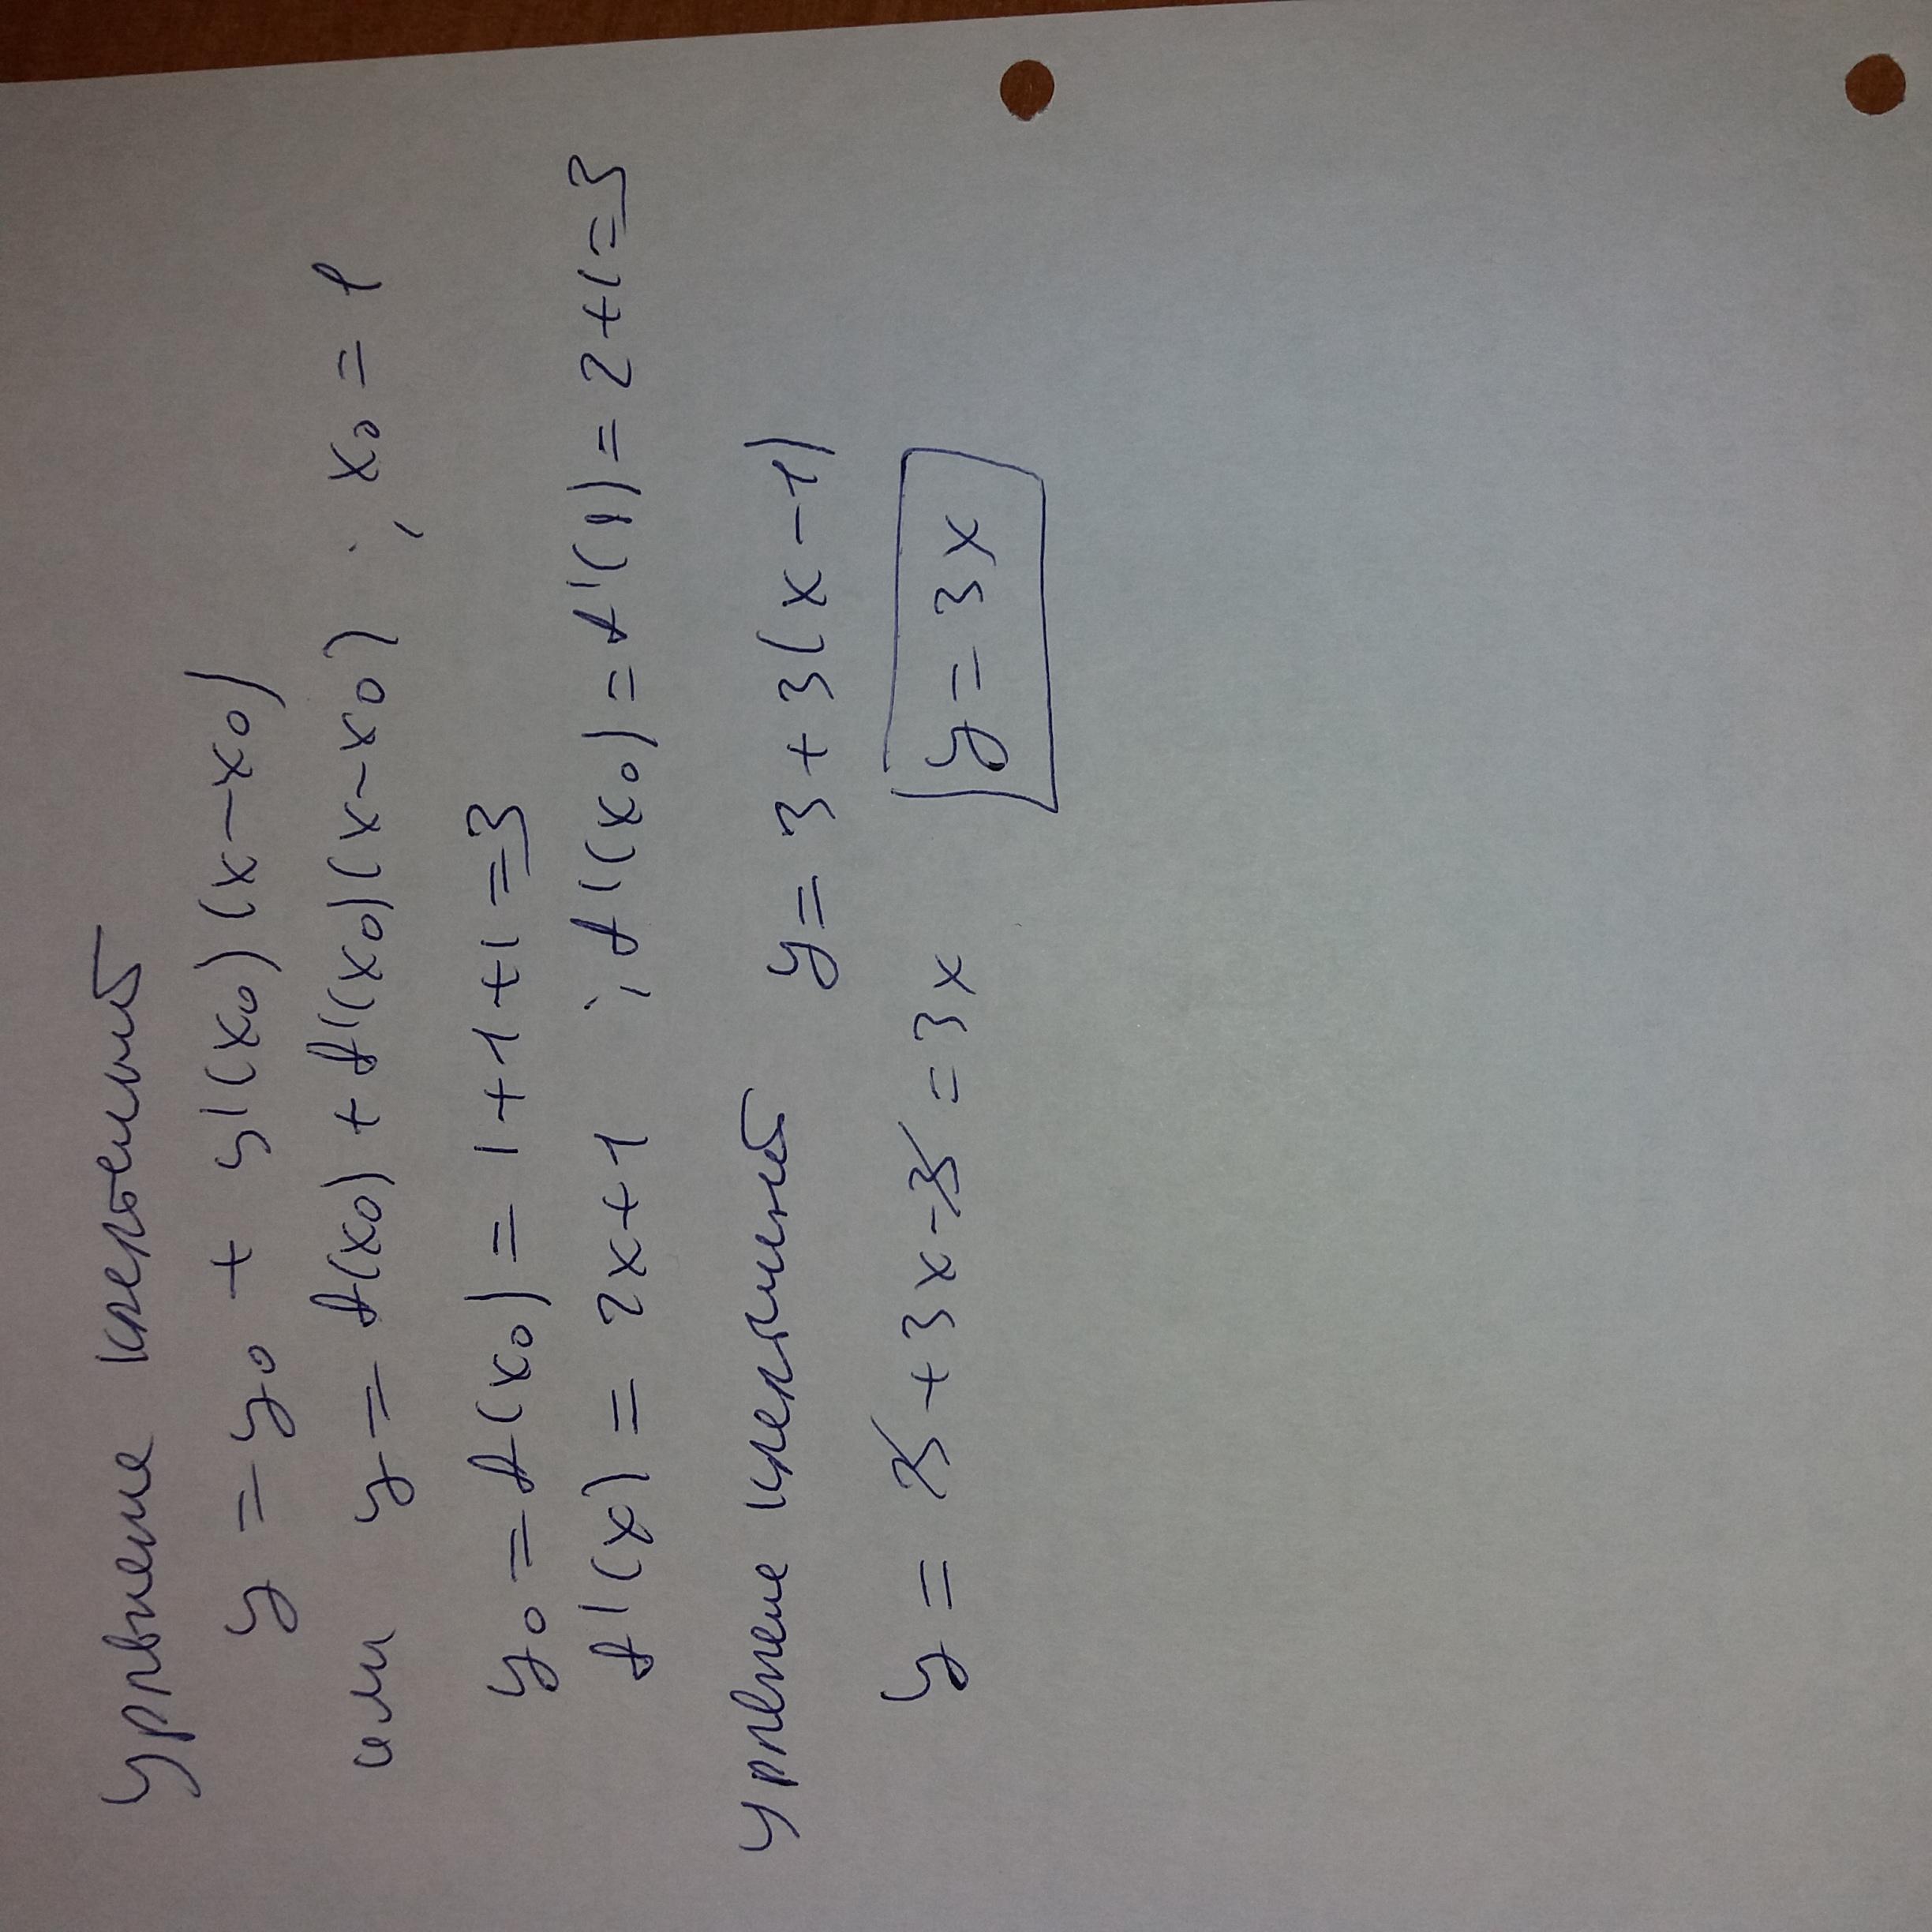 Уравнение касательной
y = y₀ + y'(x₀)(x-x₀)
или y = f(x₀) + f'(x₀)(x-x₀) ; x₀ = 1
y₀ = f(x₀) = 1+1+1=3
f'(x) = 2x+1 ; f'(x₀) = f'(1) = 2+1=3
Уравнение касательной y = 3+3(x-1)
y = 3+3x-3=3x y=3x